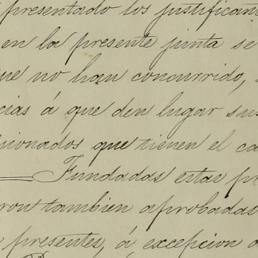 presentado los justifican
en la presente junta se
que no han concurrido,
cias á que den lugar sus
cionados que tienen el ca
Fundadas estas pr
ron tambien aprobadas
presentes, á excepcion d